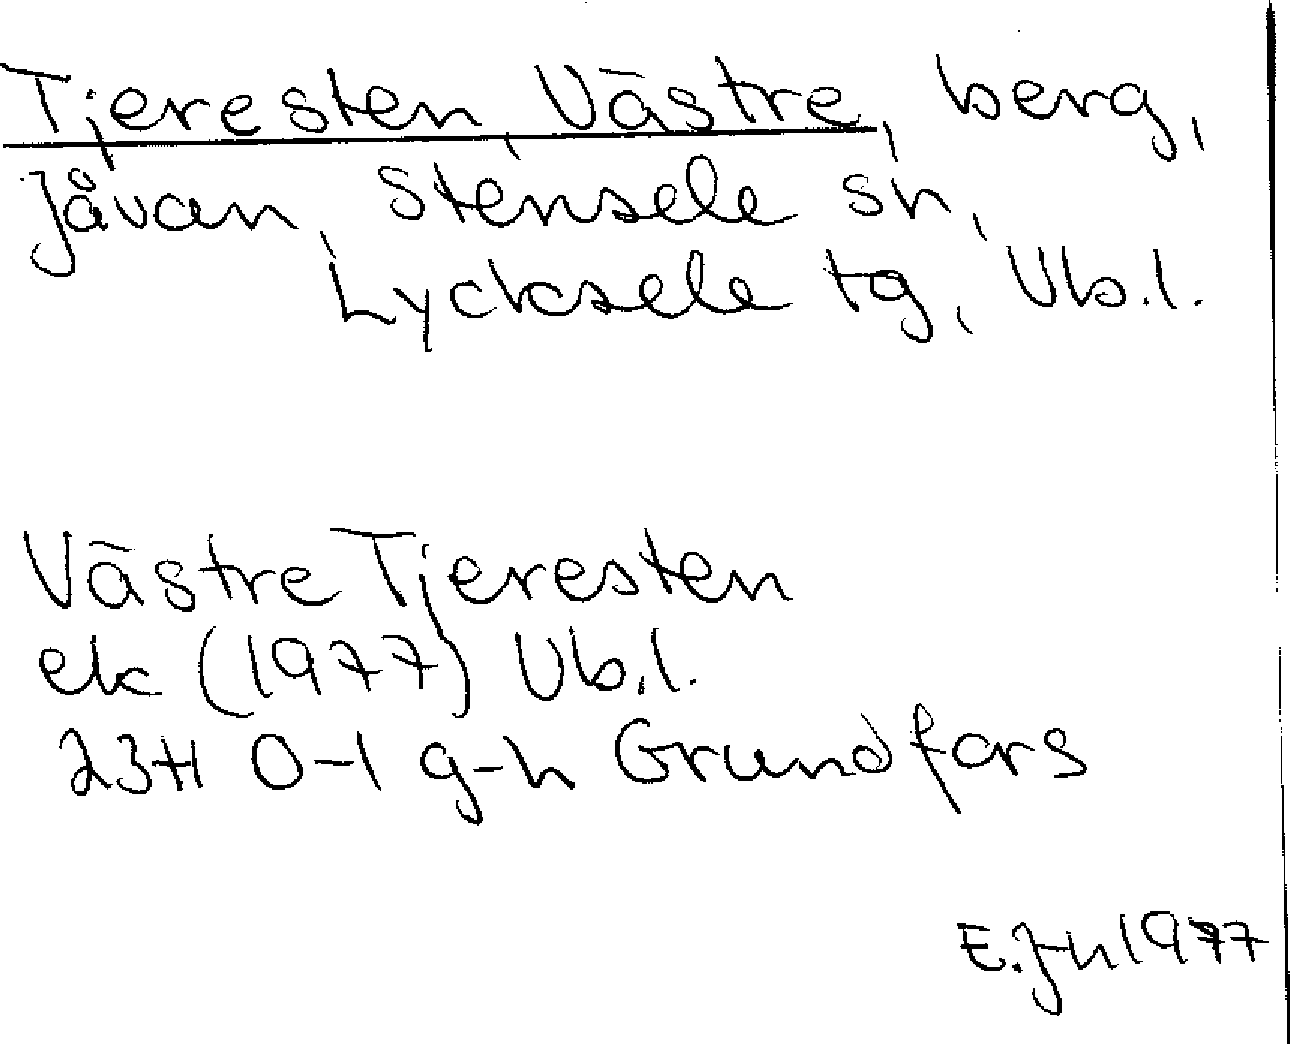 Tjeresten, Västre, berg,
Jåvan, Stensele sn,
Lycksele tg, Vb.l.
Västre Tjeresten
ek (1977) Vb.l.
23H 0-1 g-h Grundfors
E.J-n 1977